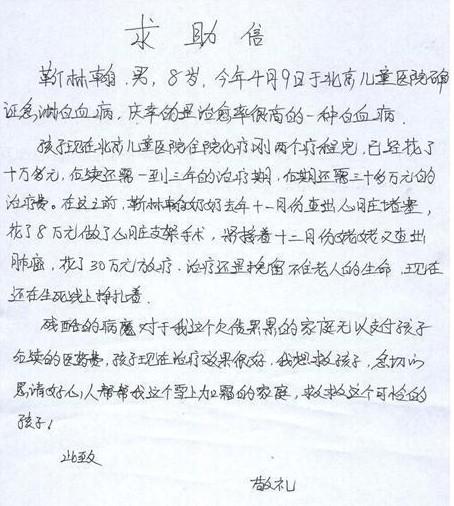 求助信
靳林翰，男，8岁，今年4月9日于北京儿童医院确
证急淋白血病，庆幸的是治愈率很高的一种白血病．
孩子现在北京儿童医院住院化疗刚两个疗程完，已经花了
十万多元，后续还需一到三年的治疗期，后期还需三十多万元的
治疗费。在这之前，靳林翰奶奶去年十一月份查出心脏堵塞，
花了8万元做了心脏支架手术，紧接着十二月份姥姥又查出
肺癌，花了30万元放疗．治疗还是挽留不住老人的生命，现在
还在生死线上挣扎着．
残酷的病魔对于我这个欠债累累的家庭无以支付孩子
后续的医药费，孩子现在治疗效果很好．我想救孩子，急切的
恳请好心人帮帮我这个雪上加霜的家庭，救救这个可怜的
孩子！
此致
敬礼